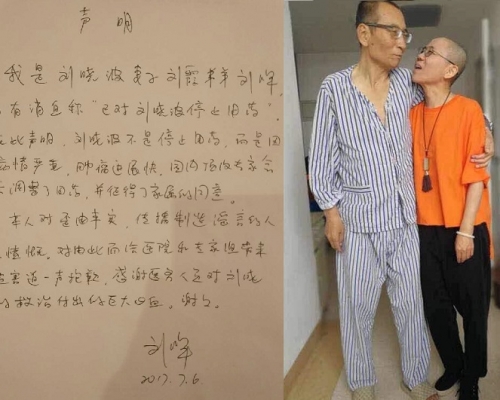 声明
我是刘晓波妻子刘霞弟弟刘晖，
有消息称“已对刘晓波停止用药”
此声明，刘晓波不是停止用药，而是因
病情严重，肿瘤进展快，国内顶级专家会
调整了用药，并征得了家属的同意。
本人对歪曲事实，传播制造谣言的人
愤慨。对由此而给医院和专家组带来
害道一声抱歉，感谢医务人员对刘晓
的救治付出的巨大心血。谢谢。
刘晖
2017.7.6